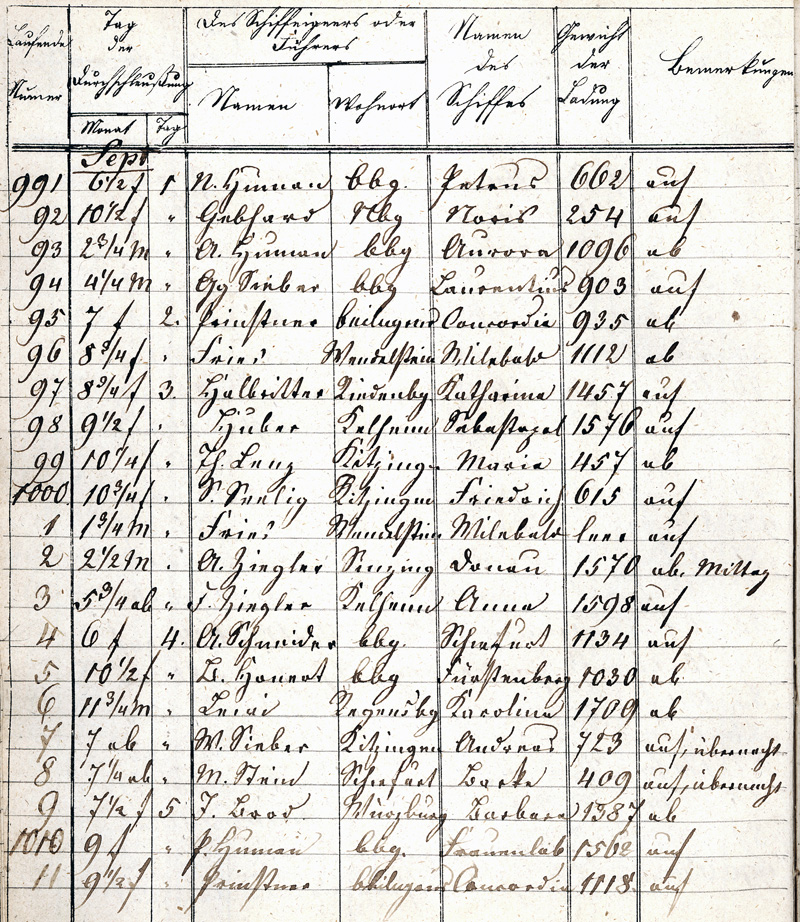 Laufende Numer | Tag der Durchschleußung | Des Schiffeigners oder Führers | Namen des Schiffes | Gewicht der Ladung | Bemerkungen
Monat | Tag | Namen | Wohnort
Sept
991 6 1/2 f 1 N. Human bbg. Petrus 662 auf
92 10 1/2 f " Gebhard Nbg Noris 254 auf
93 2 3/4 M " A. Human bbg Aurora 1096 ab
94 4 1/4 M " Gg Sieber bbg Laurentius 903 auf
95 7 f 2. Prinstner Beilngries Concordia 935 ab
96 8 3/4 f " Fries Wendelstein Wilebald 1112 ab
97 8 3/4 f 3. Halbritter Riedenbg Katharina 1457 auf
98 9 1/2 f " Huber Kelheim Sebastopol 1576 auf
99 10 1/4 f " Th. Lenz Kitzing. Maria 457 ab
1000. 10 3/4 f " S. Seelig Kitzingen Friedrich 615 auf
1 1 3/4 M " Fries Wendelstein Wilebald leer auf
2 2 1/2 M " A. Ziegler Sinzing Donau 1570 ab. Mittag
3 5 3/4 ab " F. Ziegler Kelheim Anna 1598 auf
4 6 f 4. A. Schneider bbg. Schefurt 1134 auf
5 10 1/2 f " B. Honert bbg Fürstenberg 1030 ab
6 11 3/4 M " Regensbg Karolina 1709 ab
7 7 ab " W. Sieber Kitzingen Andreas 723 auf, übernacht
8 7 1/4 ab " M. Stein Schefurt Barke 409 auf, übernacht
9 7 1/2 f 5 J. Brod Würzburg Barbara 1387 ab
1010 9 f " P. Human bbg. Frauenlob 1562 auf
11 9 1/2 f " Prinstner Beilngries Concordia 1118. auf